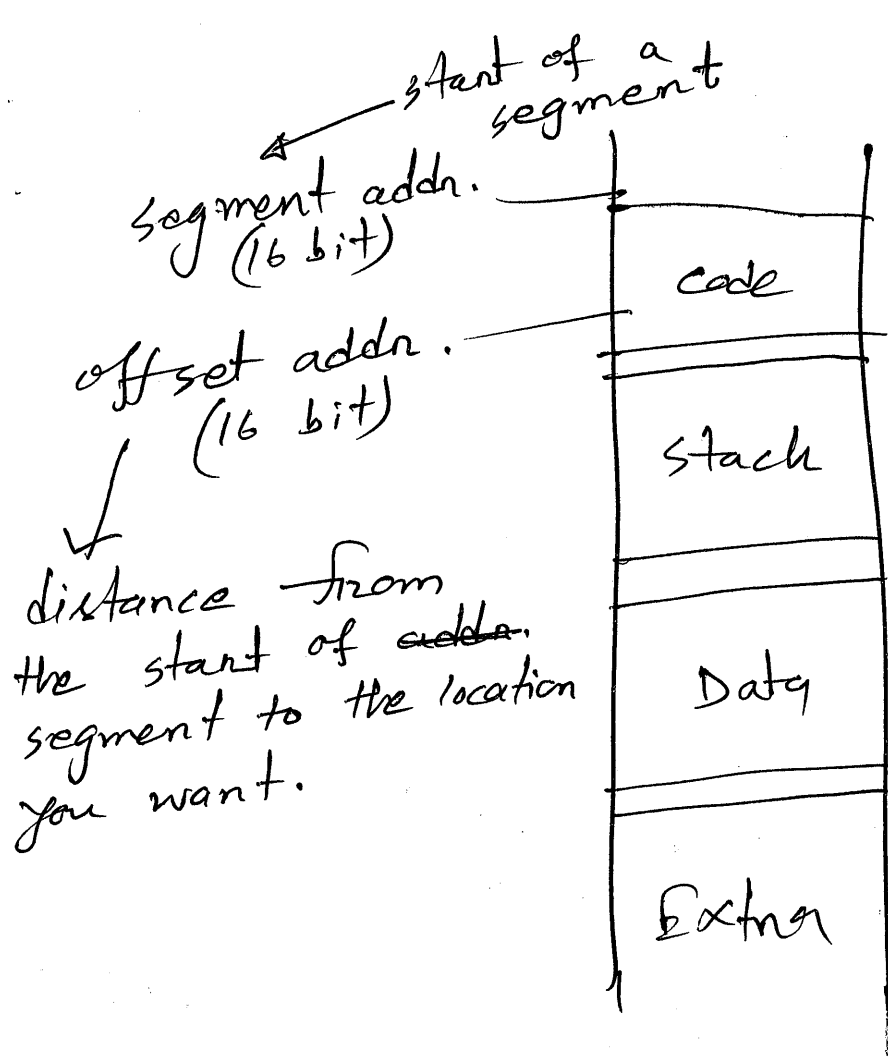 start of a
segment
segment addr.
(16 bit)
code
offset addr.
(16 bit)
stack
distance from
the start of addr.
segment to the location
you want.
Data
Extra